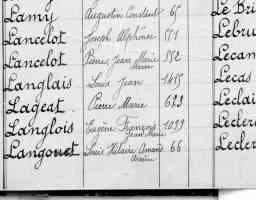 Lamy Augustin Constant 65 Le Bri
Lancelot Joseph Alphonse 571 Lebru
Lancelot Pierre Jean Marie 552 Lecam
Langlais Louis Jean 1415 Lecas
Lageat Pierre Marie 693 Leclai
Langlois Eugène François Jean Marie 1099 Lecler
Langouet Louis Hilaire Amand 66 Lecler